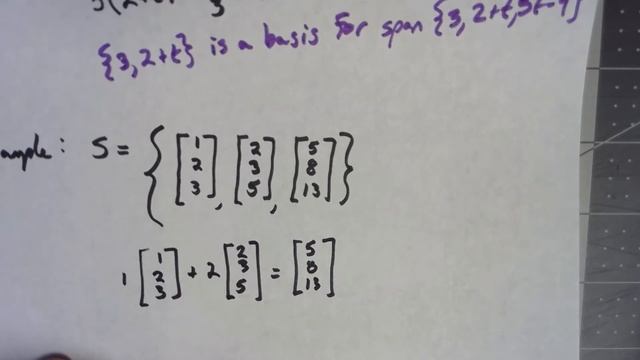 {3, 2+t} is a basis for span {3, 2+t, 5t-9}
ample: S = { [1 2 3], [2 3 5], [5 8 13] }
1 [1 2 3] + 2 [2 3 5] = [5 8 13]